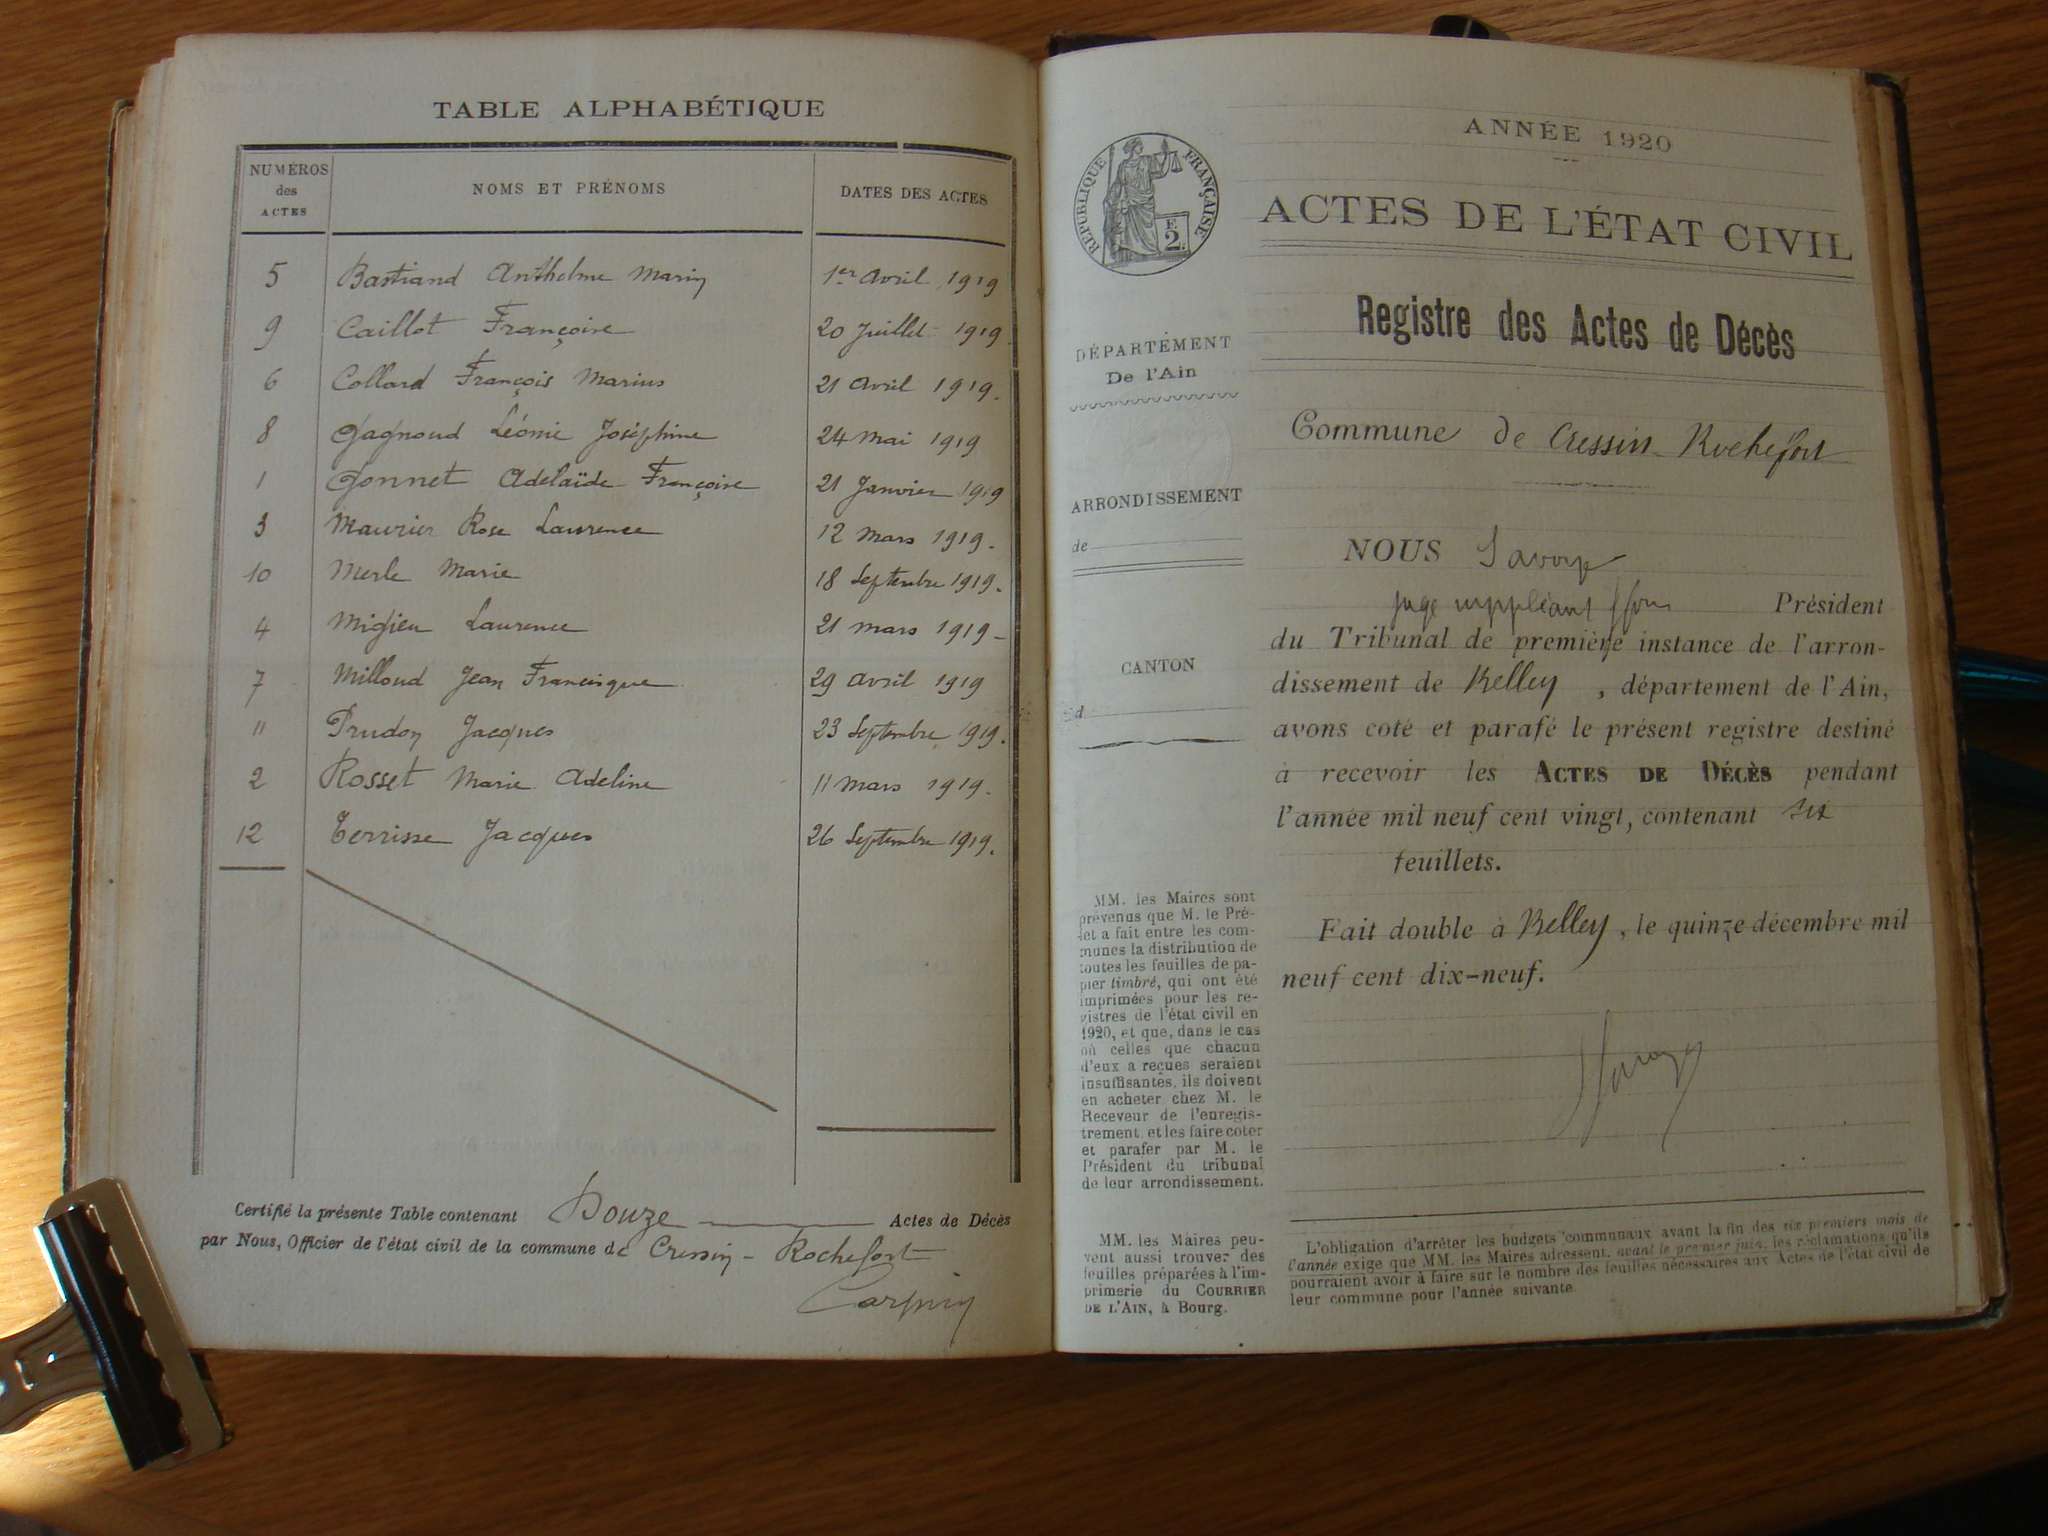 TABLE ALPHABÉTIQUE
NUMÉROS des ACTES NOMS ET PRÉNOMS DATES DES ACTES
5 Bastiand Anthelme Marin 1er Avril 1919
9 Caillot Françoise 20 Juillet 1919.
6 Collard François Marius 21 Avril 1919.
8 Gagnoud Léonie Joséphine 24 Mai 1919
1 Gonnet Adelaïde Françoise 21 Janvier 1919
3 Maurier Rose Laurence 12 Mars 1919.
10 Merle Marie 18 Septembre 1919.
4 Migieu Laurence 21 Mars 1919
7 Milloud Jean Francisque 29 Avril 1919
11 Prudon Jacques 23 Septembre 1919.
2 Rosset Marie Adeline 11 Mars 1919.
12 Terrisse Jacques 26 Septembre 1919.
Certifié la présente Table contenant Douze Actes de Décès
par Nous, Officier de l'état civil de la commune de Cressin-Rochefort
ANNÉE 1920
RÉPUBLIQUE FRANÇAISE
E
2.
ACTES DE L'ÉTAT CIVIL
Registre des Actes de Décès
DÉPARTEMENT
De l'Ain
Commune de Cressin-Rochefort
ARRONDISSEMENT
de
CANTON
d
NOUS Savoye
juge suppléant Président
du Tribunal de première instance de l'arron-
dissement de Belley, département de l'Ain,
avons coté et parafé le présent registre destiné
à recevoir les ACTES DE DÉCÈS pendant
l'année mil neuf cent vingt, contenant six
feuillets.
Fait double à Belley, le quinze décembre mil
neuf cent dix-neuf.
MM. les Maires sont
prévenus que M. le Pré-
fet a fait entre les com-
munes la distribution de
toutes les feuilles de pa-
pier timbré, qui ont été
imprimées pour les re-
gistres de l'état civil en
1920, et que, dans le cas
où celles que chacun
d'eux a reçues seraient
insuffisantes, ils doivent
en acheter chez M. le
Receveur de l'enregis-
trement, et les faire coter
et parafer par M. le
Président du tribunal
de leur arrondissement.
MM. les Maires peu-
vent aussi trouver des
feuilles préparées à l'im-
primerie du COURRIER
DE L'AIN, à Bourg.
L'obligation d'arrêter les budgets communaux avant la fin des six premiers mois de
l'année exige que MM. les Maires adressent, avant le premier juin, les réclamations qu'ils
pourraient avoir à faire sur le nombre des feuilles nécessaires aux Actes de l'état civil de
leur commune pour l'année suivante.